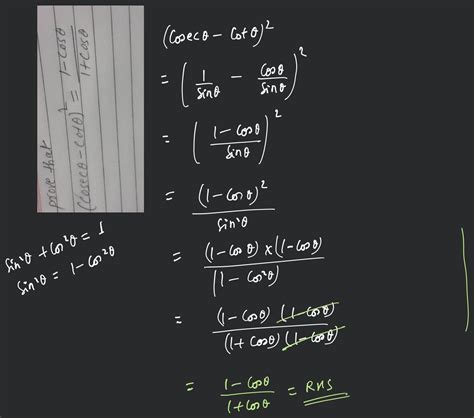 prove that
(cosec θ - cot θ)² = 1 - cos θ / 1 + cos θ
(cosec θ - cot θ)²
= (1/sin θ - cos θ/sin θ)²
= (1 - cos θ/sin θ)²
= (1 - cos θ)²/sin² θ
sin² θ + cos² θ = 1
sin² θ = 1 - cos² θ
= (1 - cos θ) × (1 - cos θ)/(1 - cos² θ)
= (1 - cos θ) (1 - cos θ)/(1 + cos θ) (1 - cos θ)
= 1 - cos θ/1 + cos θ = RHS